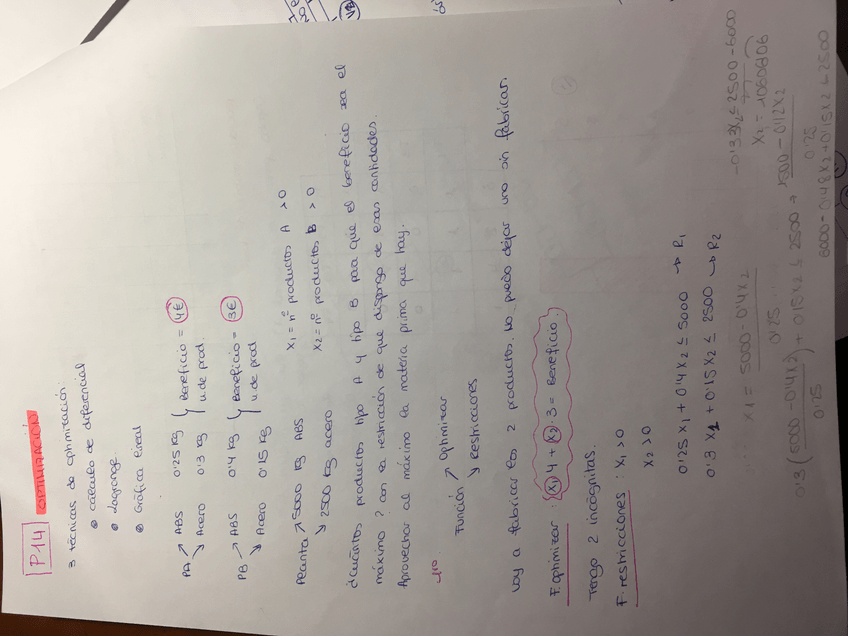 P14 OPTIMIZACIÓN
3 técnicas de optimitación:
cálculo de diferencial
Lagrange
Gráfica lineal
PA ↗ ABS 0'25 Kg } Beneficio = 4€
↘ Acero 0'3 Kg } u de prod.
PB ↗ ABS 0'4 Kg } Beneficio = 3€
↘ Acero 0'15 Kg } u de prod
Planta ↗ 5000 Kg ABS
↘ 2500 Kg acero
x1 = nº productos A > 0
x2 = nº productos B > 0
¿Cuántos productos tipo A y tipo B para que el beneficio sea el
máximo? con la restricción de que dispongo de esas cantidades.
Aprovechar al máximo la materia prima que hay.
Función ↗ Optimizar
↘ Restricciones
Voy a fabricar los 2 productos. No puedo dejar uno sin fabricar.
F. optimizar: x1 4 + x2 · 3 = Beneficio.
Tengo 2 incógnitas.
F. restricciones: x1 > 0
x2 > 0
0'25 x1 + 0'4 x2 ≤ 5000 → R1
0'3 x1 + 0'15 x2 ≤ 2500 → R2
x1 = 5000 - 0'4 x2
0'25
0'3 ( 5000 - 0'4 x2 ) + 0'15 x2 ≤ 2500 →
0'25
-0'33 x2 ≤ 2500 - 6000
x2 = 10606'06
5000 - 0'12 x2
0'25
6000 - 0'48 x2 + 0'15 x2 ≤ 2500